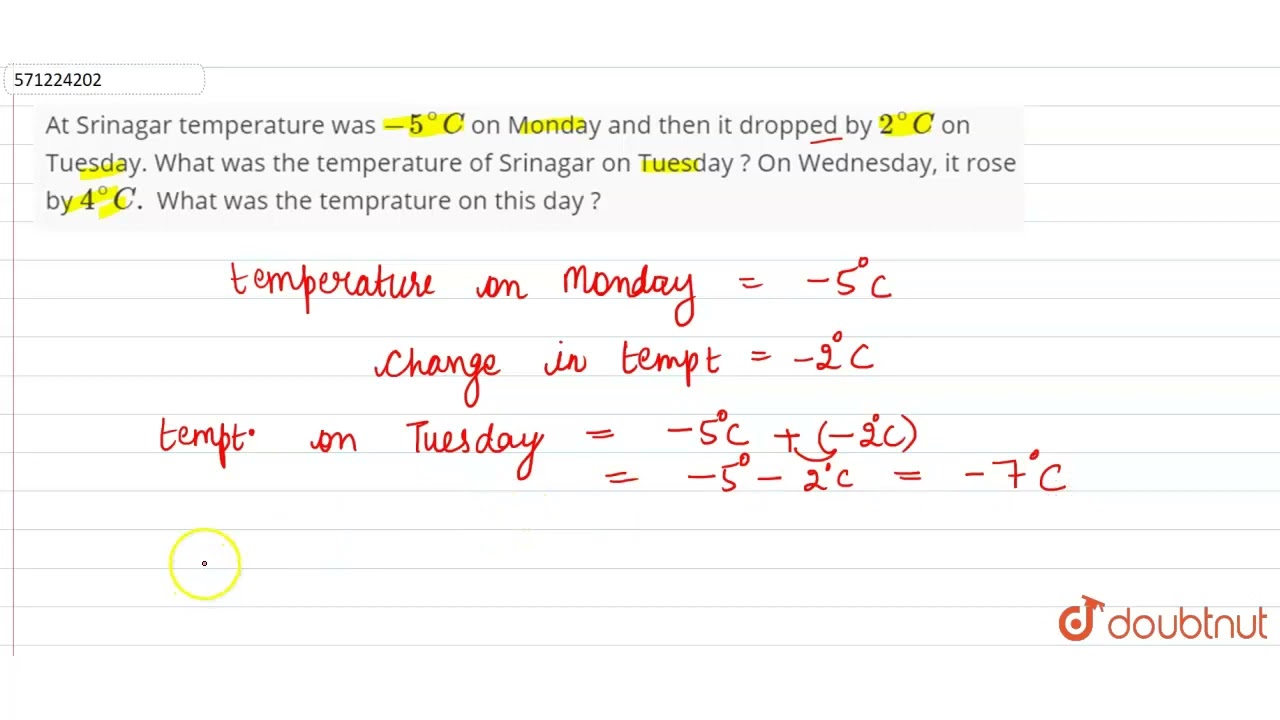 571224202
At Srinagar temperature was −5°C on Monday and then it dropped by 2°C on
Tuesday. What was the temperature of Srinagar on Tuesday ? On Wednesday, it rose
by 4°C. What was the temprature on this day ?
temperature on Monday = -5°C
change in tempt = -2°C
tempt. on Tuesday = -5°C + (-2°C)
= -5° - 2°C = -7°C
doubtnut